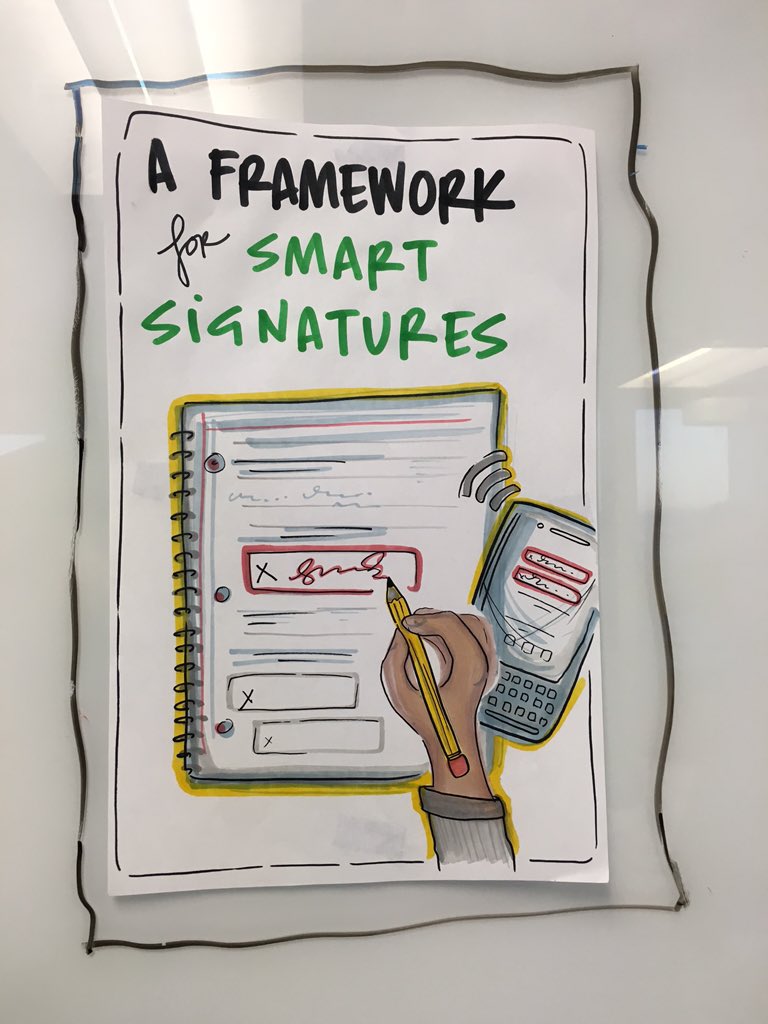 A FRAMEWORK
for SMART
SIGNATURES
X
X
X